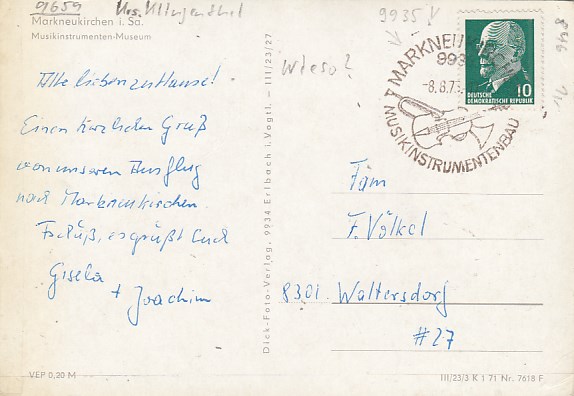 9659
Krs. Klingenthal
9935 !
Markneukirchen i. Sa.
Musikinstrumenten-Museum
wieso?
MARKNEU
993
-8.8.73
MUSIKINSTRUMENTENBAU
DEUTSCHE
DEMOKRATISCHE REPUBLIK
10
Alle lieben zuhause!
Einen herzlichen Gruß
von unserem Ausflug
nach Markneukirchen.
Tschüß, es grüßt Euch
Gisela
+ Joachim
Dick-Foto-Verlag, 9934 Erlbach i. Vogtl. — III/23/27
Fam
F. Völkel
8301 Waltersdorf
#27
VEP 0,20 M
III/23/3 K 1 71 Nr. 7618 F